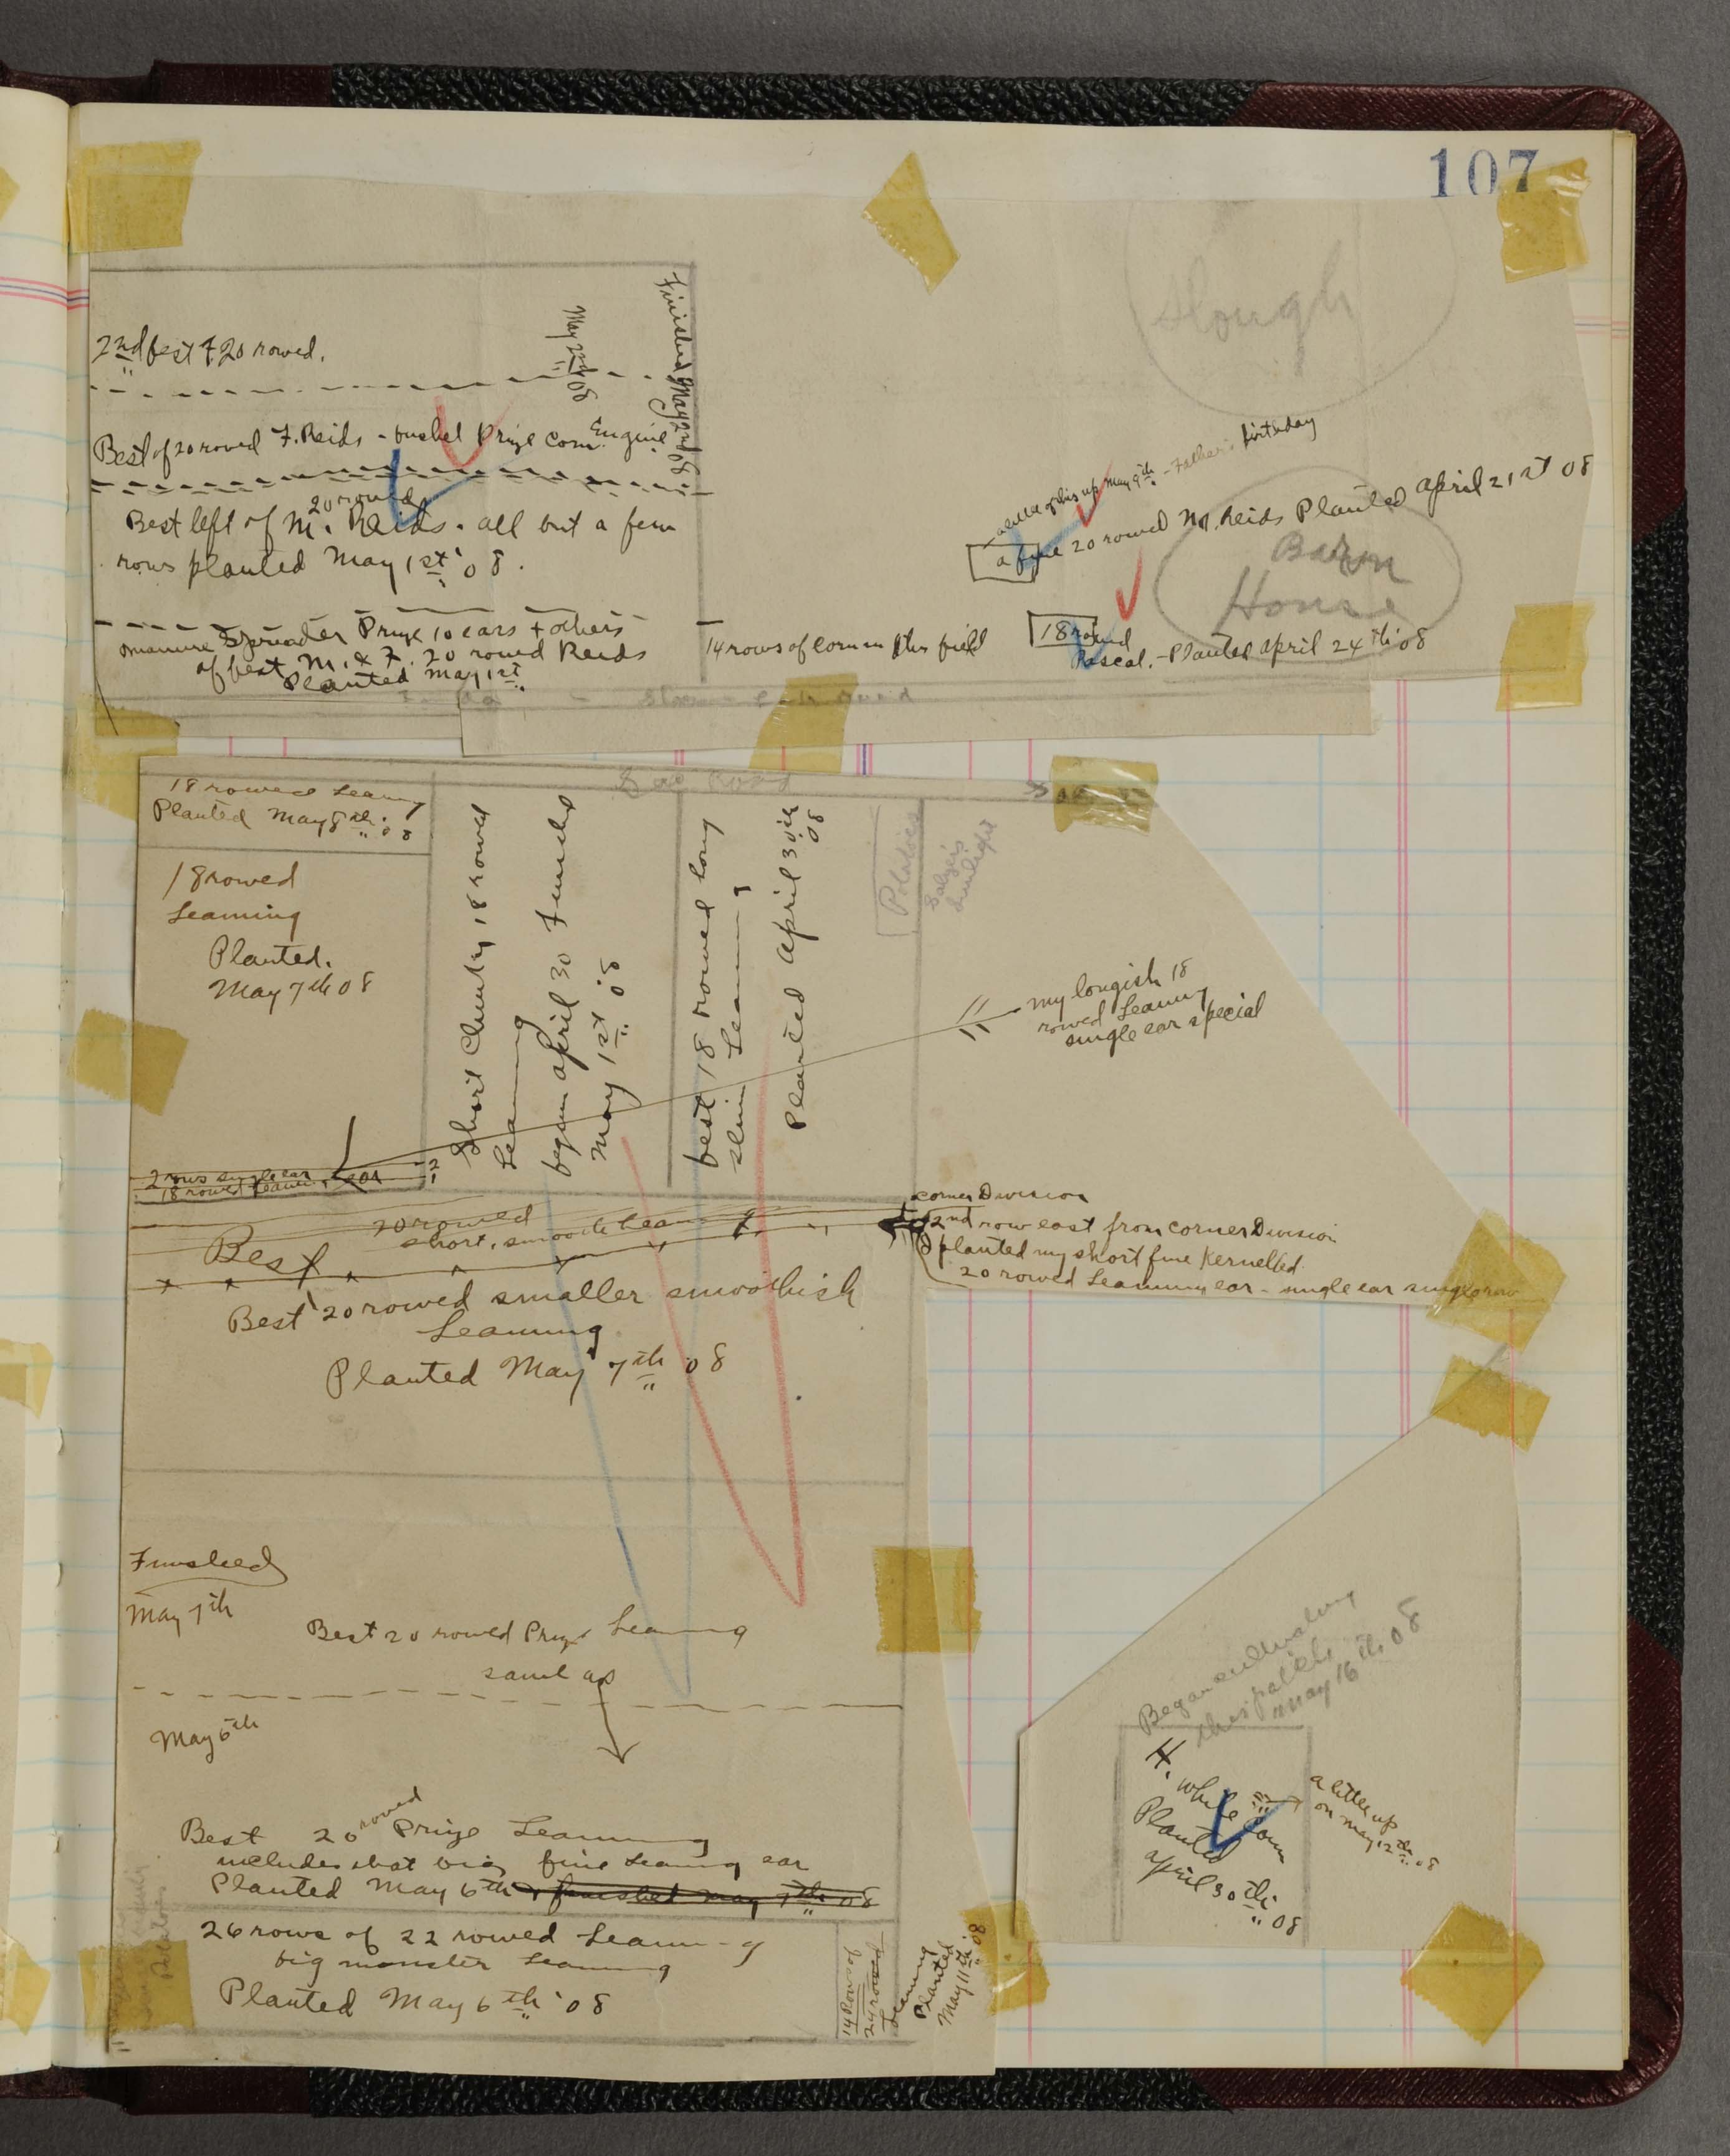 107
Slough
2nd best F 20 rowed.
May 2nd 08
Finished May 2nd 08
Best of 20 rowed F. Reids - bushel Prize corn Engine
20 rowed
Best left of M. Reids. all but a few
rows planted May 1st '08.
manure Spreader Prize 10 ears + others
of best M. & F. 20 rowed Reids
Planted May 1st
14 rows of corn in this field
a little of this up May 9th - Father's birthday
a fine 20 rowed M. Reids Planted April 21st 08
Barn
House
18 rowed
Pascal. - Planted April 24th '08
Road
18 rowed Leaming
Planted May 8th. 08
18 rowed
Leaming
Planted.
May 7th 08
Short Chunky 18 rowed
Leaming
begun April 30 Finished
May 1st 08
best 18 rowed long
slim Leaming
Planted April 30th
08
Potatoes
Salzer's
Sunlight
my longish 18
rowed Leaming
single ear special
2 rows single ear
18 rowed Leaming
corner Division
2nd row east from corner Division
I planted my short fine Kernelled
20 rowed Leaming ear - single ear single row
20 rowed
short, smooth Leaming
Best
Best 20 rowed smaller smoothish
Leaming
Planted May 7th 08
Finished
May 7th
Best 20 rowed Prize Leaming
same as
May 6th
Best 20 rowed Prize Leaming
includes that big fine Leaming ear
Planted May 6th & finished May 7th 08
26 rows of 22 rowed Leaming
big monster Leaming
Planted May 6th '08
14 Rows of
24 rowed
Leaming
Planted
May 11th '08
Potatoes
Began cultivating
this patch
May 16th 08
H. White Corn
Planted
April 30th 08
a little up
on May 12th 08